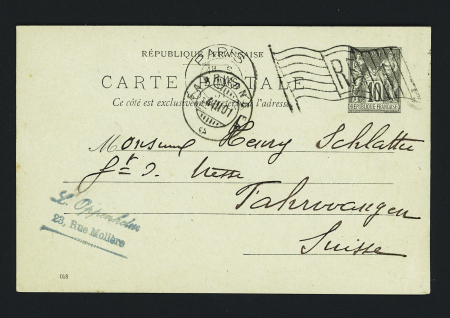 RÉPUBLIQUE FRANÇAISE
CARTE POSTALE
Ce côté est exclusivement réservé à l'adresse.
PARIS
RF
10
REPUBLIQUE FRANÇAISE
Monsieur Henry Schlatter
Fahrwangen
Suisse
L. Oppenheim
23, Rue Molière